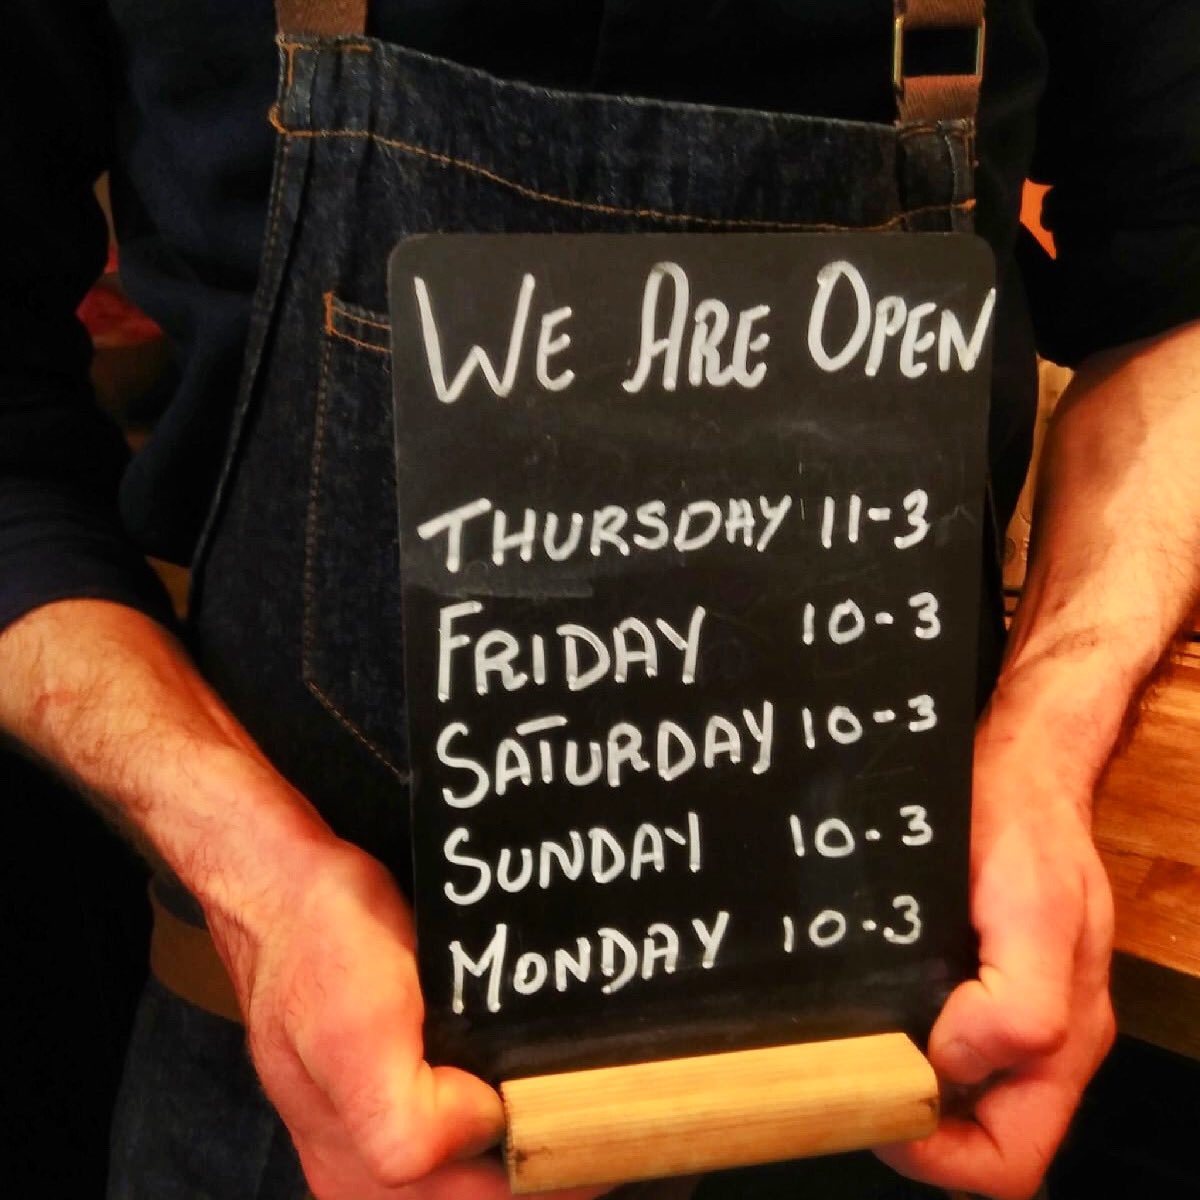 WE ARE OPEN
THURSDAY 11-3
FRIDAY 10-3
SATURDAY 10-3
SUNDAY 10-3
MONDAY 10-3